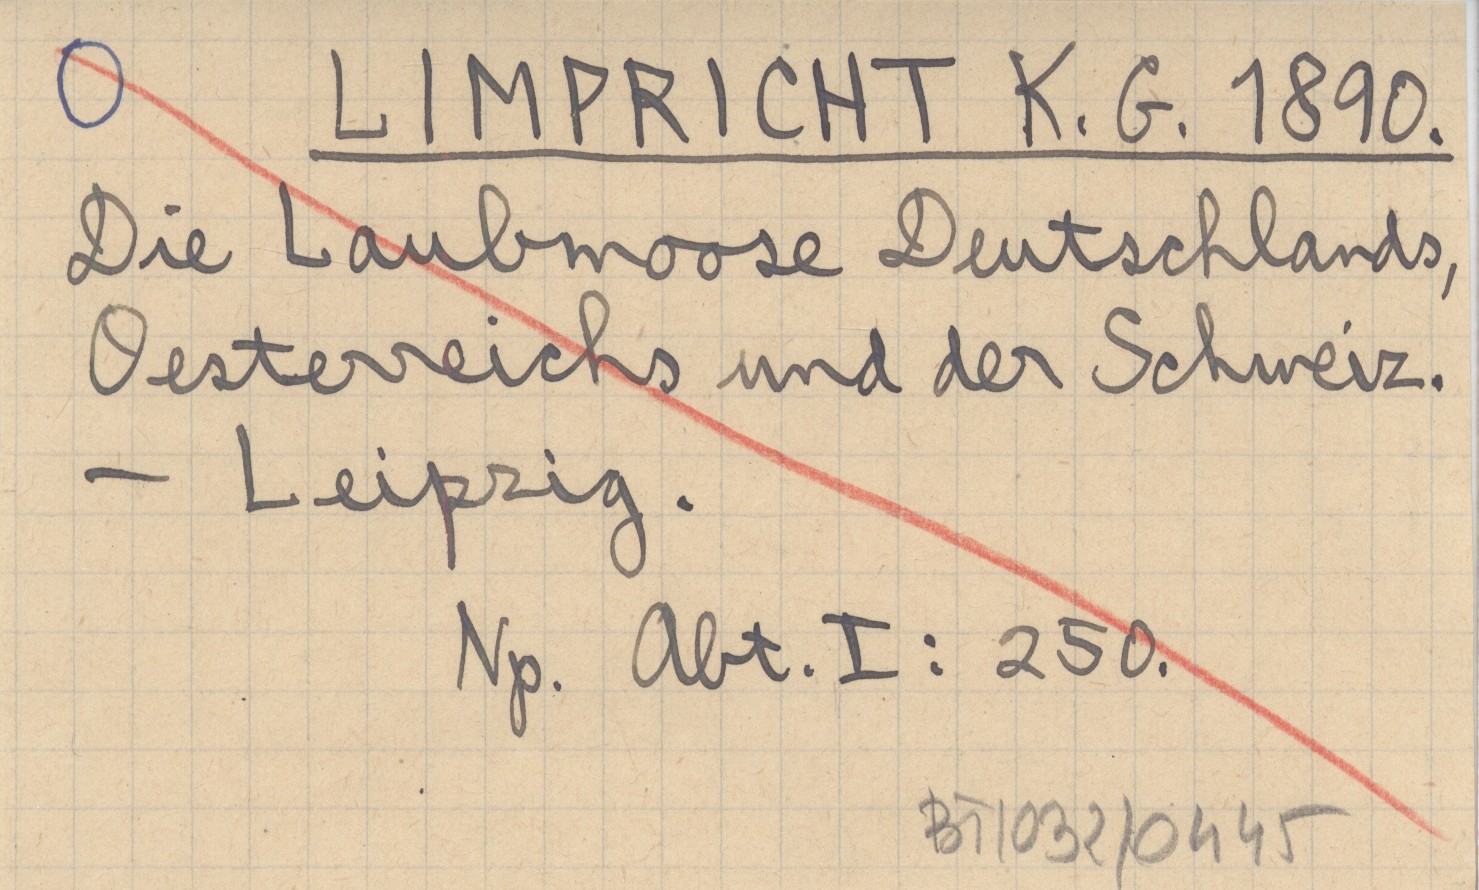 O LIMPRICHT K. G. 1890.
Die Laubmoose Deutschlands,
Oesterreichs und der Schweiz.
— Leipzig.
Np. Abt. I: 250.
BT/032/0445